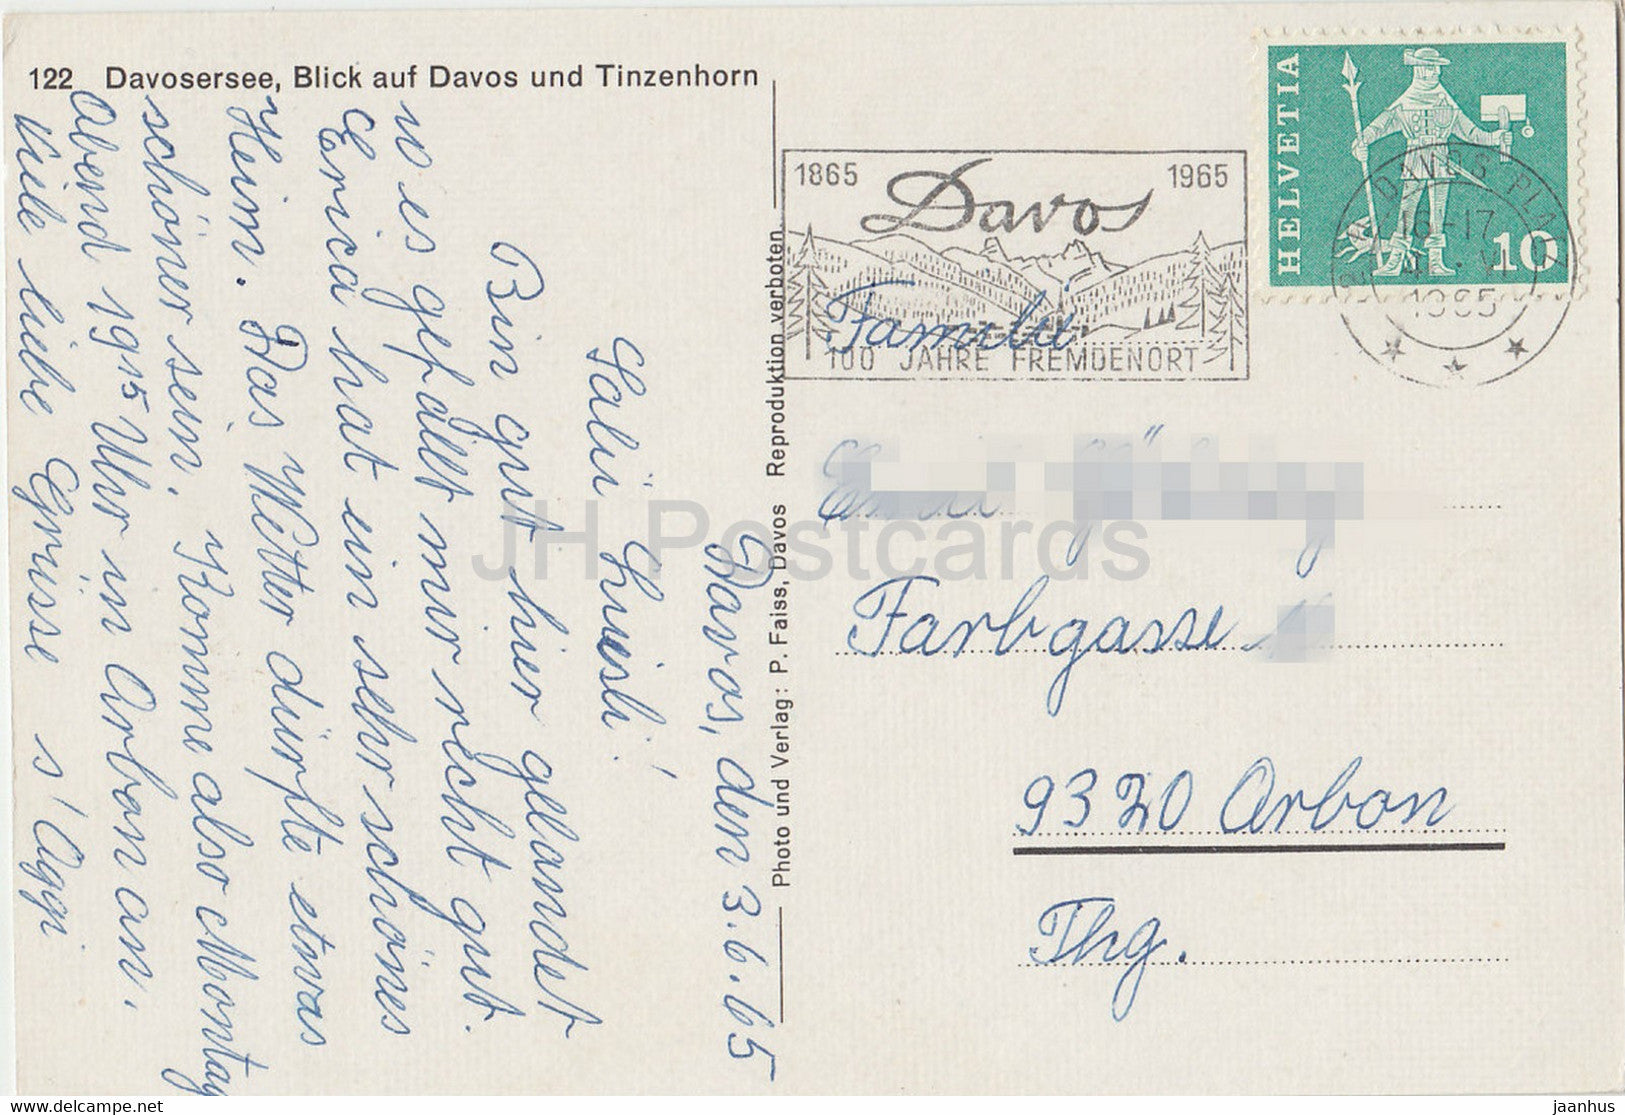 122 Davosersee, Blick auf Davos und Tinzenhorn
Davos, den 3.6.65
Salü Luisli!
Bin gut hier gelandet
wo es gefällt mir recht gut.
Erica hat ein sehr schönes
Heim. Das Wetter dürfte etwas
schöner sein. Komme also Montag
abend 19 15 Uhr in Arbon an.
Viele liebe Grüsse s' Aggi
Photo und Verlag: P. Faiss, Davos Reproduktion verboten.
1865 Davos 1965
100 JAHRE FREMDENORT
HELVETIA
10
DAVOS PLATZ
16-17
1965
Familie
Farbgasse
9320 Arbon
Thg.
JH Postcards
jaanhus